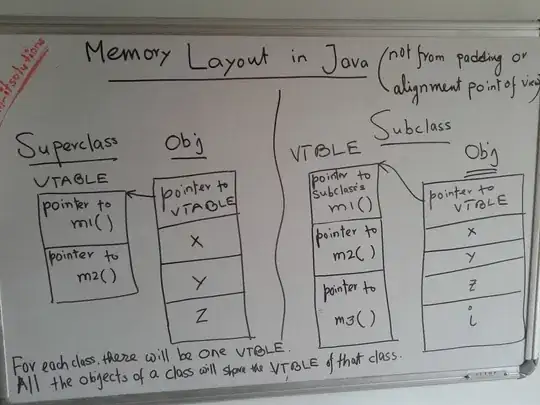 Memory Layout in Java
(not from padding or
alignment point of view)
Superclass
VTABLE
pointer to
m1()
pointer to
m2()
Obj
pointer to
VTABLE
X
Y
Z
Subclass
VTBLE
pointer to
subclass's
m1()
pointer to
m2()
pointer to
m3()
Obj
pointer to
VTBLE
X
Y
Z
i
For each class, there will be one VTBLE.
All the objects of a class will share the VTBLE of that class.